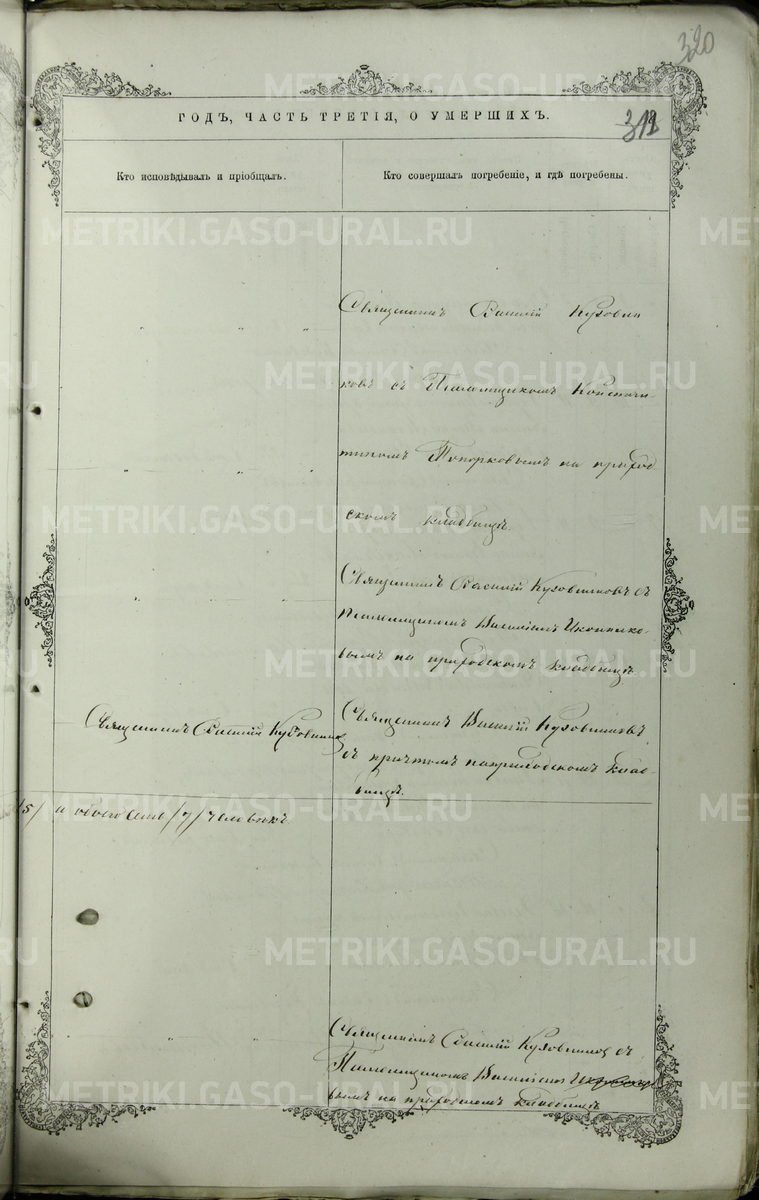 320
ГОДЪ, ЧАСТЬ ТРЕТІЯ, О УМЕРШИХЪ.
319
Кто исповѣдывалъ и пріобщалъ.
Кто совершалъ погребеніе, и гдѣ погребены.
Священникъ Василій Кузовни
ковъ съ Псаломщикомъ Констан
тиномъ Топорковымъ на приход
скомъ кладбищѣ.
Священникъ Василій Кузовниковъ съ
Псаломщикомъ
вымъ на приходскомъ кладбищѣ
Священникъ Василій Кузовниковъ
Священникъ Василій Кузовниковъ
съ причтомъ на приходскомъ клад-
бищѣ.
/5/ и обоего семь /7/ человѣкъ
Священникъ Василій Кузовниковъ съ
Псаломщикомъ
вымъ на приходскомъ кладбищѣ
METRIKI.GASO-URAL.RU